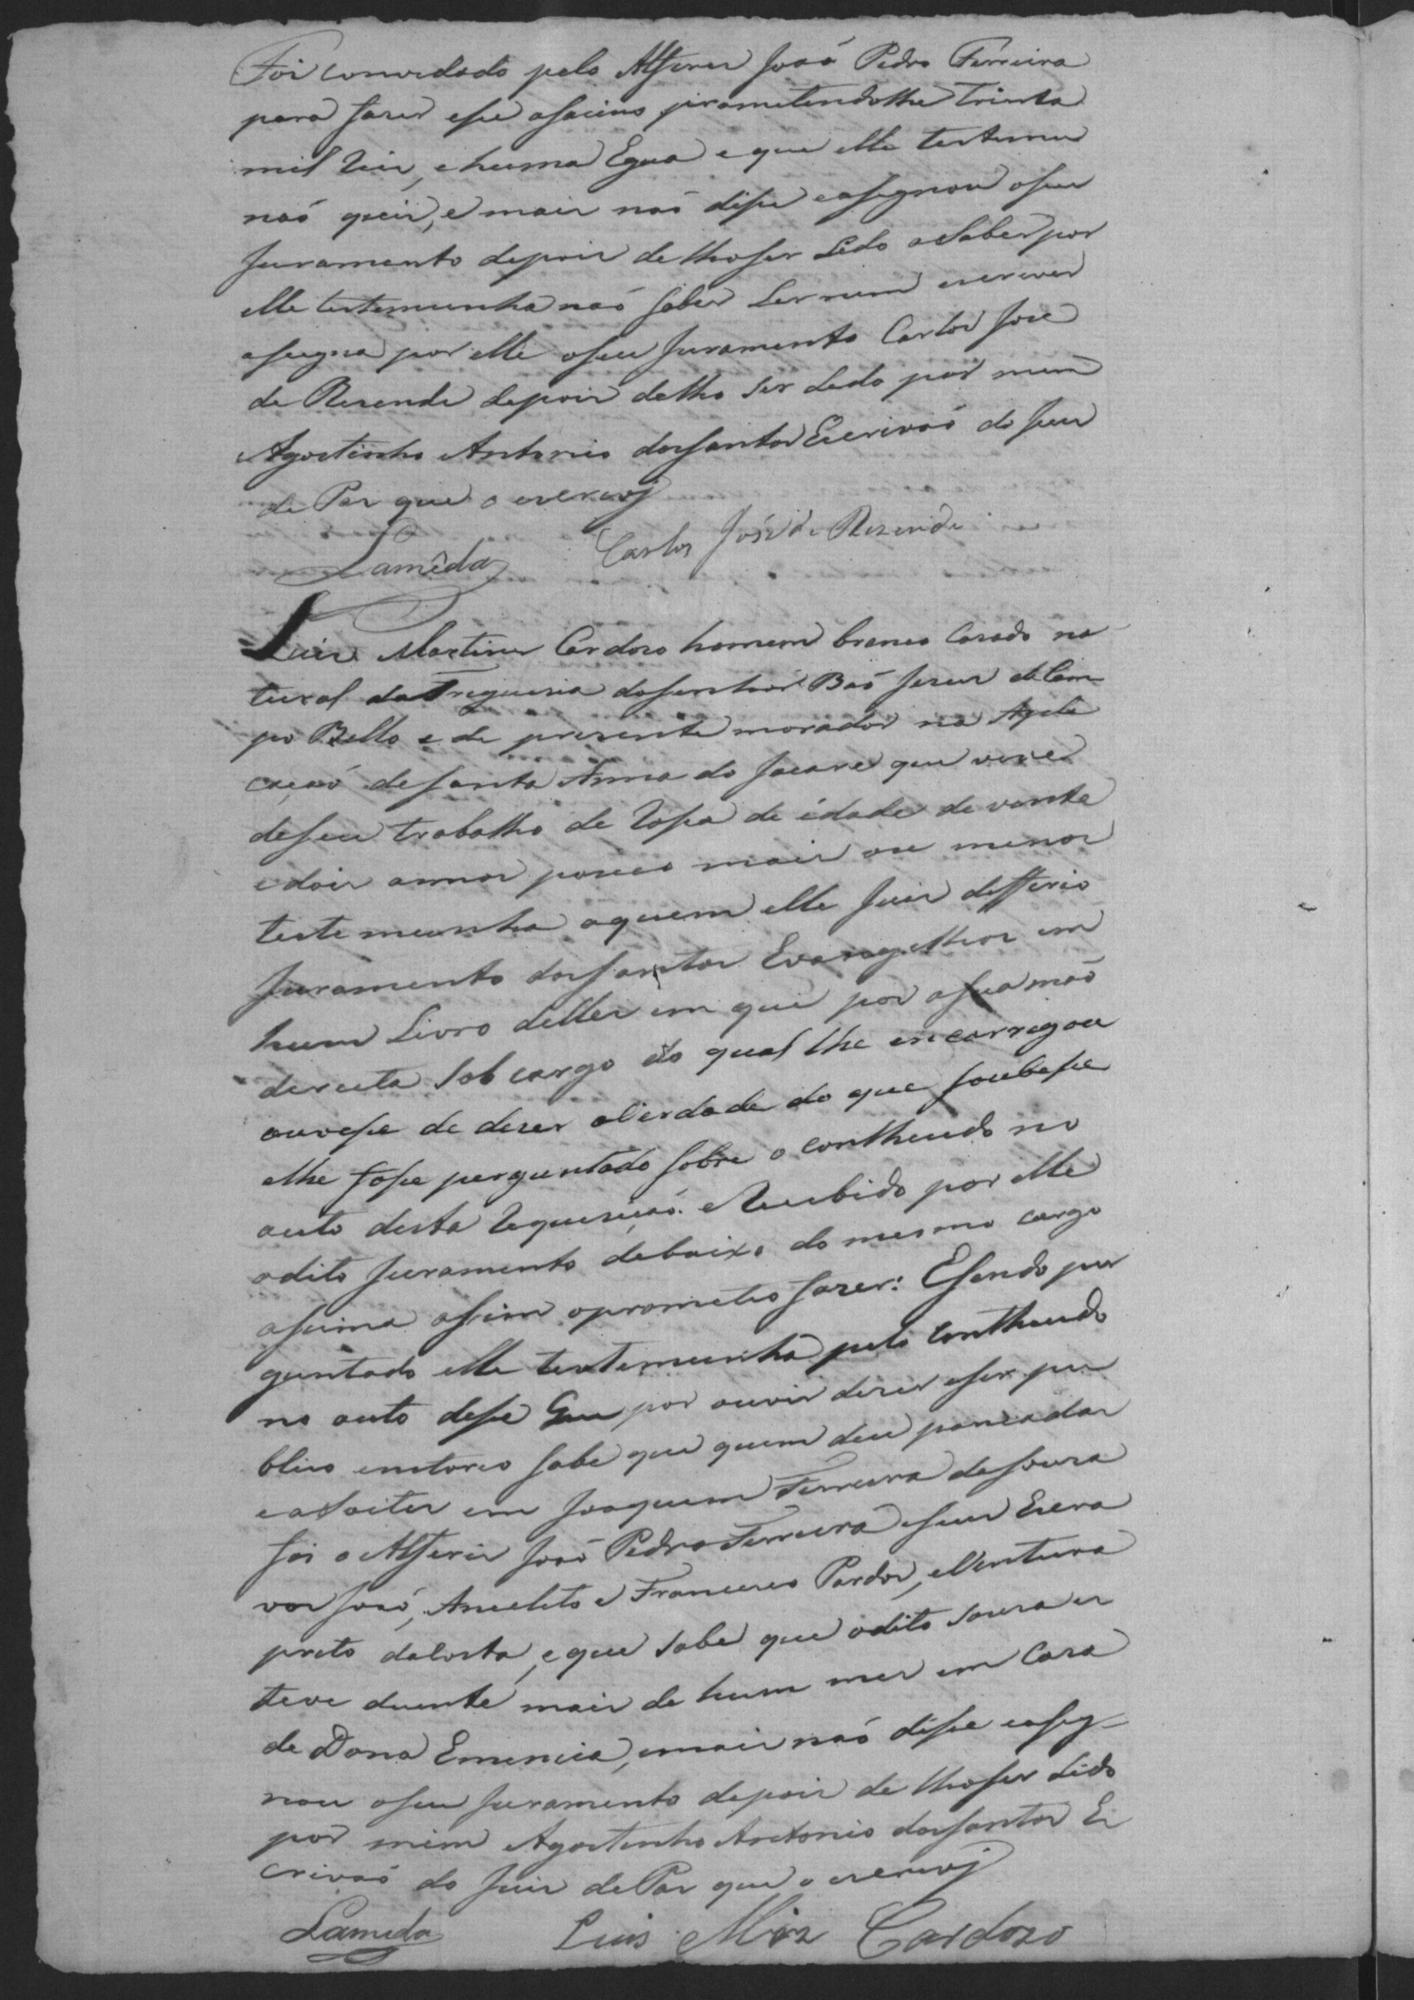 Foi convidado pelo Alferes João Pedro Ferreira
para faser esse asacino prometendolhe trinta
mil reis, e huma Egua e que elle testemu
não quis, e mais não disse e asegnou o seu
Juramento depois de lhoser Lido e Saber por
elle testemunha não saber Ler nem escrever
asegna por elle o seu Juramento Carlos José
de Resende depois delho ser Lido por mim
Agostinho Antonio dosSantos Escrivão do Juis
de Pas que o escrevi
Lamêda Carlos José de Rezende
Luis Martins Cardozo homem branco Casado na
tural da Freguesia doSenhor Bão Jesus de Cam
po Bello e de presente morador na Aplica
cação deSanta Anna do Jacaré que vive
deseu trabalho de rossa de idade de vinte
e dois annos pouco mais ou menos
testemunha aquem elle Juis defferio
Juramento dosSantos Evangelhos em
hum Livro delles em que pos a sua mão
dereita Sob cargo do qual lhe encarregou
ouvese de dizer a Verdade do que soubese
elhe fose perguntado sobre o conthiudo no
auto desta requesição. e Recebido por elle
odito Juramento debaixo do mesmo cargo
asima assim oprometeo faser: Esendo per
guntado elle testemunha pelo conthiudo
no auto dese Que por ouvir diser eser pu
blico enotorio sabe que quem deu pancadas
easoites em Joaquim Ferreira deSousa
foi o Alferes João Pedro Ferreira eseus Escra
vos José, Anecleto e Francisco Pardos, eVentura
preto daCosta, e que Sabe que odito Sousa es
teve duente mais de hum mes em Casa
de Dona Emerencia, emais não disse easeg-
nou oseu Juramento depois de lhoser Lido
por mim Agostinho Antonio dosSantos Es
crivão do Juis dePas que o escrevi
Lameda Luis Miz Cardozo